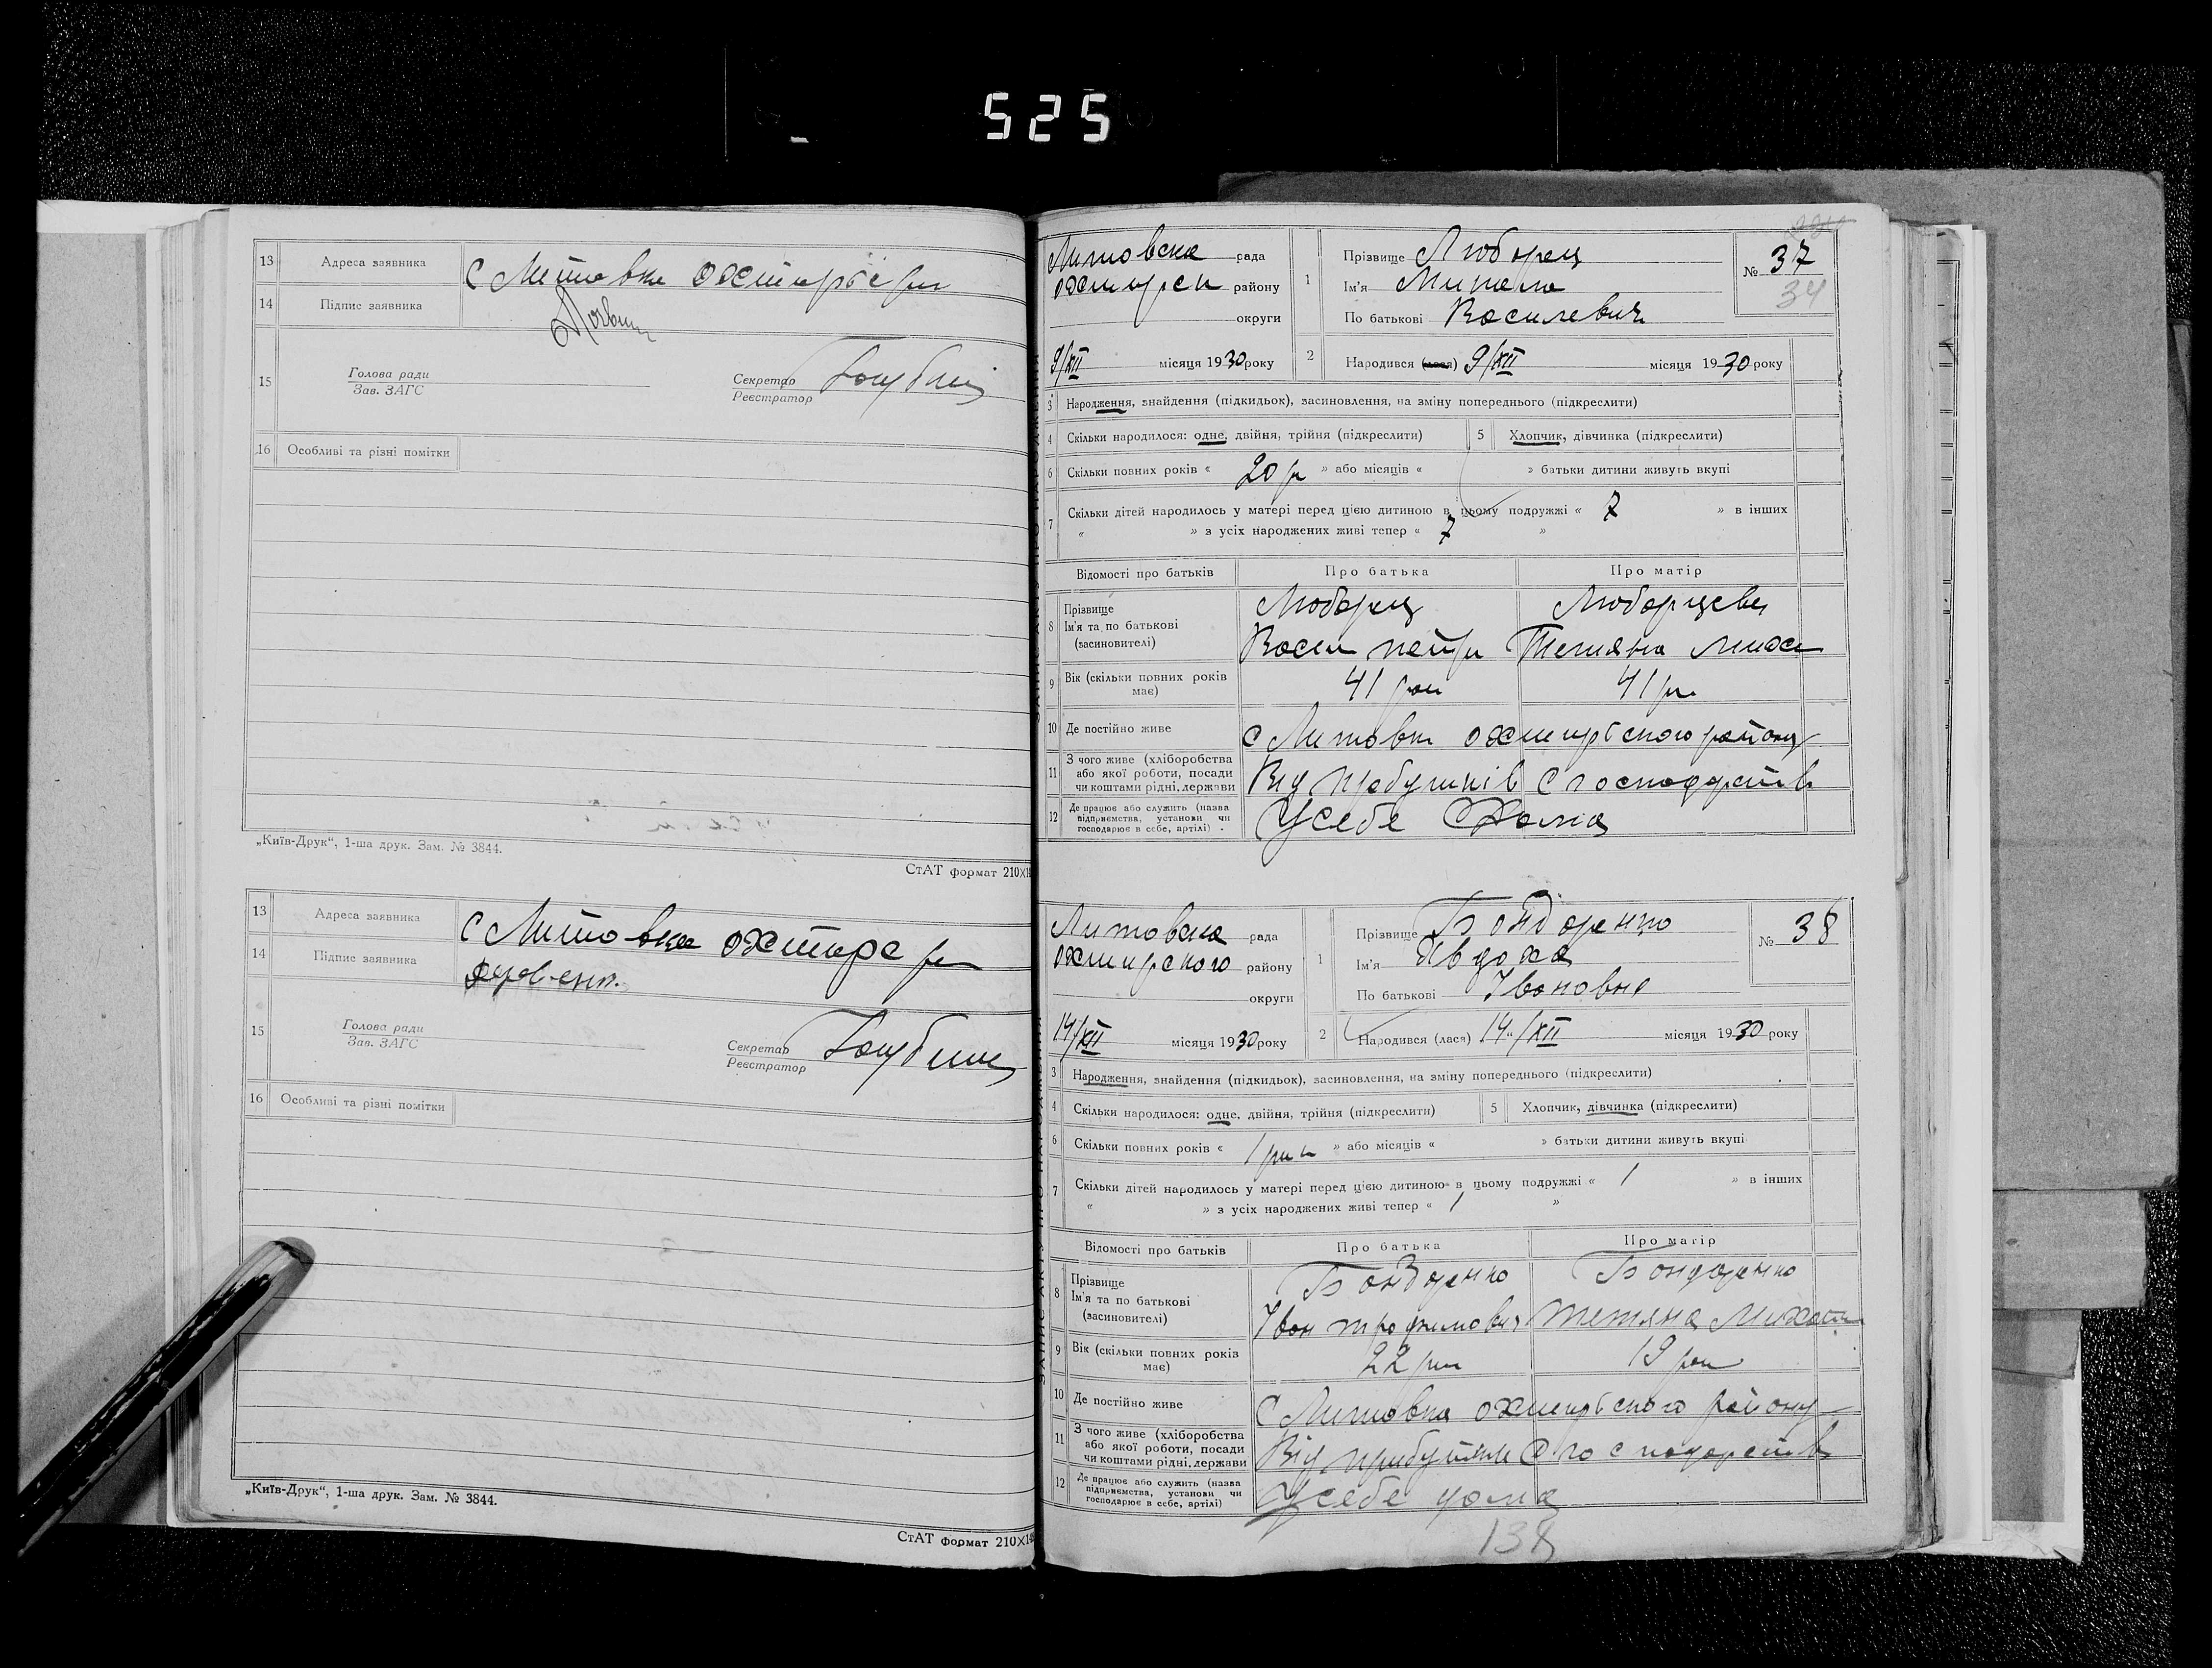 525
13 Адреса заявника С Литовка Охтирс рн
14 Підпис заявника
15 Голова ради
Зав. ЗАГС
Секретар
Реєстратор
16 Особливі та різні помітки
„Київ-Друк“, 1-ша друк. Зам. № 3844.
СтАТ формат 210×14
13 Адреса заявника С Литовка охтирс рн
14 Підпис заявника
15 Голова ради
Зав. ЗАГС
Секретар
Реєстратор
16 Особливі та різні помітки
„Київ-Друк“, 1-ша друк. Зам. № 3844.
СтАТ формат 210×14
Литовска рада
охтирск району
округи
9/XII місяця 1930 року
1 Прізвище Люборец
Ім'я Микола
По батькові Василевич
№ 37
34
2 Народився (лася) 9/XII місяця 1930 року
3 Народження, знайдення (підкидьок), засиновлення, на зміну попереднього (підкреслити)
4 Скільки народилося: одне, двійня, трійня (підкреслити) 5 Хлопчик, дівчинка (підкреслити)
6 Скільки повних років « 20 р » або місяців « » батьки дитини живуть вкупі
7 Скільки дітей народилось у матері перед цією дитиною в цьому подружжі « 7 » в інших
« » з усіх народжених живі тепер « 7 »
Відомості про батьків Про батька Про матір
8 Прізвище Люборец Люборцева
Ім'я та по батькові
(засиновителі) Васил петр Тетяна
9 Вік (скільки повних років має) 41 рок 41 рн
10 Де постійно живе С Литовка охтирського району
11 З чого живе (хліборобства або якої роботи, посади чи коштами рідні, держави Від прибутків С господарств
12 Де працює або служить (назва підприємства, установи чи господарює в себе, артілі) Усебе дома
Литовска рада
охтирского району
округи
14/XII місяця 1930 року
1 Прізвище Бондоренко
Ім'я Явдоха
По батькові Івановна
№ 38
2 Народився (лася) 14/XII місяця 1930 року
3 Народження, знайдення (підкидьок), засиновлення, на зміну попереднього (підкреслити)
4 Скільки народилося: одне, двійня, трійня (підкреслити) 5 Хлопчик, дівчинка (підкреслити)
6 Скільки повних років « 1 рик » або місяців « » батьки дитини живуть вкупі
7 Скільки дітей народилось у матері перед цією дитиною в цьому подружжі « 1 » в інших
« » з усіх народжених живі тепер « 1 »
Відомості про батьків Про батька Про матір
8 Прізвище Бондоренко Бондоренко
Ім'я та по батькові
(засиновителі) Іван трофимович тетяна Михайл
9 Вік (скільки повних років має) 22 рн 19 рок
10 Де постійно живе С Литовка охтирського району
11 З чого живе (хліборобства або якої роботи, посади чи коштами рідні, держави Від прибутків С господарств
12 Де працює або служить (назва підприємства, установи чи господарює в себе, артілі) Усебе дома
138